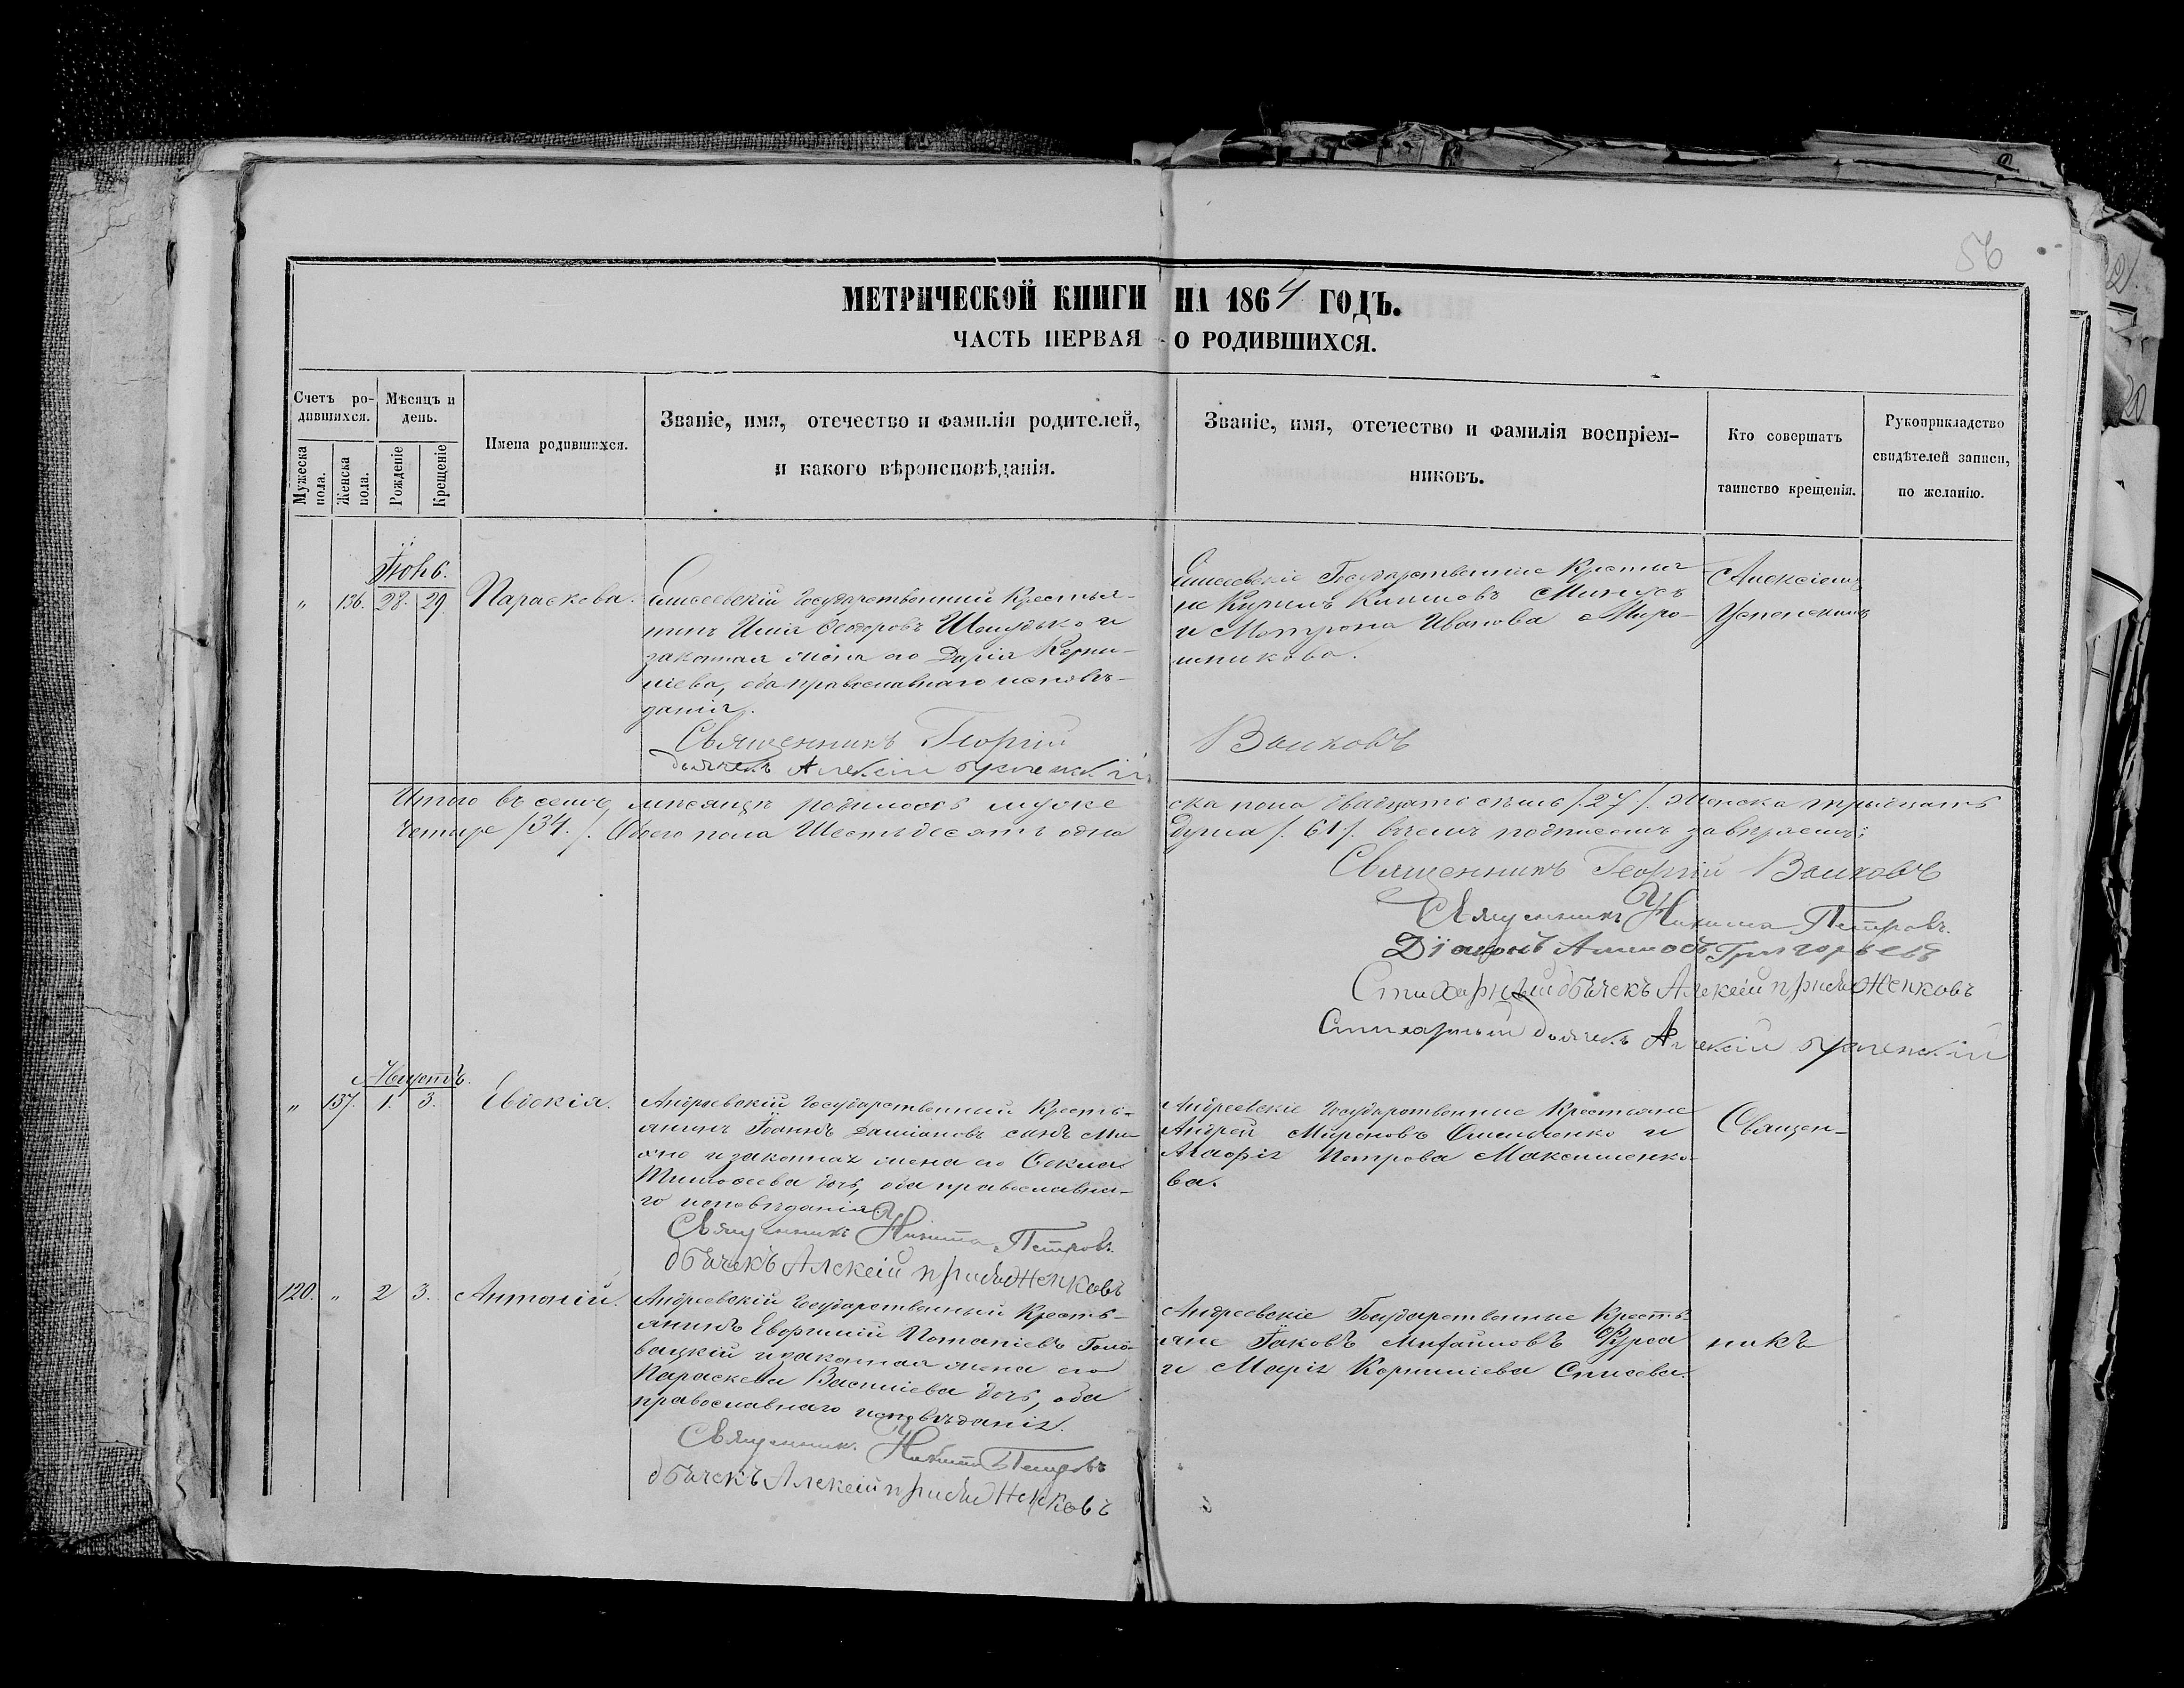 56
МЕТРИЧЕСКОЙ КНИГИ НА 1864 ГОДЪ.
ЧАСТЬ ПЕРВАЯ О РОДИВШИХСЯ.
Счетъ родившихся.
Мужеска пола.
Женска пола.
Мѣсяцъ и день.
Рожденіе
Крещеніе
Имена родившихся.
Званіе, имя, отечество и фамилія родителей,
и какого вѣроисповѣданія.
Званіе, имя, отечество и фамилія воспріем-
никовъ.
Кто совершатъ
таинство крещенія.
Рукоприкладство
свидѣтелей записи,
по желанію.
Іюнь.
" 136. 28. 29. Параскева.
Елисеевскій Государственный Крестья-
нинъ Илія Ѳеодоровъ и
законная жена его Дарія Корни-
ліева, оба православнаго исповѣ-
данія.
Священникъ Георгій Волковъ
дьячекъ Алексій Успенскій
Елисеевскіе Государственные Крестья
не Кирилъ Климовъ
и Мотрона Иванова Миро-
шникова.
Алексіемъ
Успенскимъ
Итого въ семъ мѣсяцѣ родилось мужеска пола двадцать семь /.27./. Женска трыдцать
четыре /34./. Обоего пола Шестьдесятъ одна Душа /.61/. въ чемъ подписемъ завѣряемъ:
Священникъ Георгій Волковъ
Священникъ Никита Петровъ.
Діаконъ Григорьевъ
Стихарный дьячекъ Алексій
Стихарный дьячекъ Алексій Успенскій
Августъ.
" 137. 1. 3. Евдокія.
Андреевскій Государственный Кресть-
янинъ Іоаннъ Даміановъ сынъ
и законная жена его Ѳекла
Тимоѳеева дочь, оба православна-
го исповѣданія.
Священникъ Никита Петровъ.
дьячекъ Алексій
Андреевскіе Государственные Крестьяне
Андрей Мироновъ Омельченко и
Агафія Петрова Максименко-
ва.
Священ-
120. " 2 3. Антоній.
Андреевскій Государственный Кресть-
янинъ Евфимій Потапіевъ Голо-
вацкій и законная жена его
Параскева Василіева дочь, оба
православнаго исповѣданія.
Священникъ Никита Петровъ
дьячекъ Алексій
Андреевскіе Государственные Кресть-
яне Іаковъ Михайловъ Фурса
и Марія Корниліева
никъ